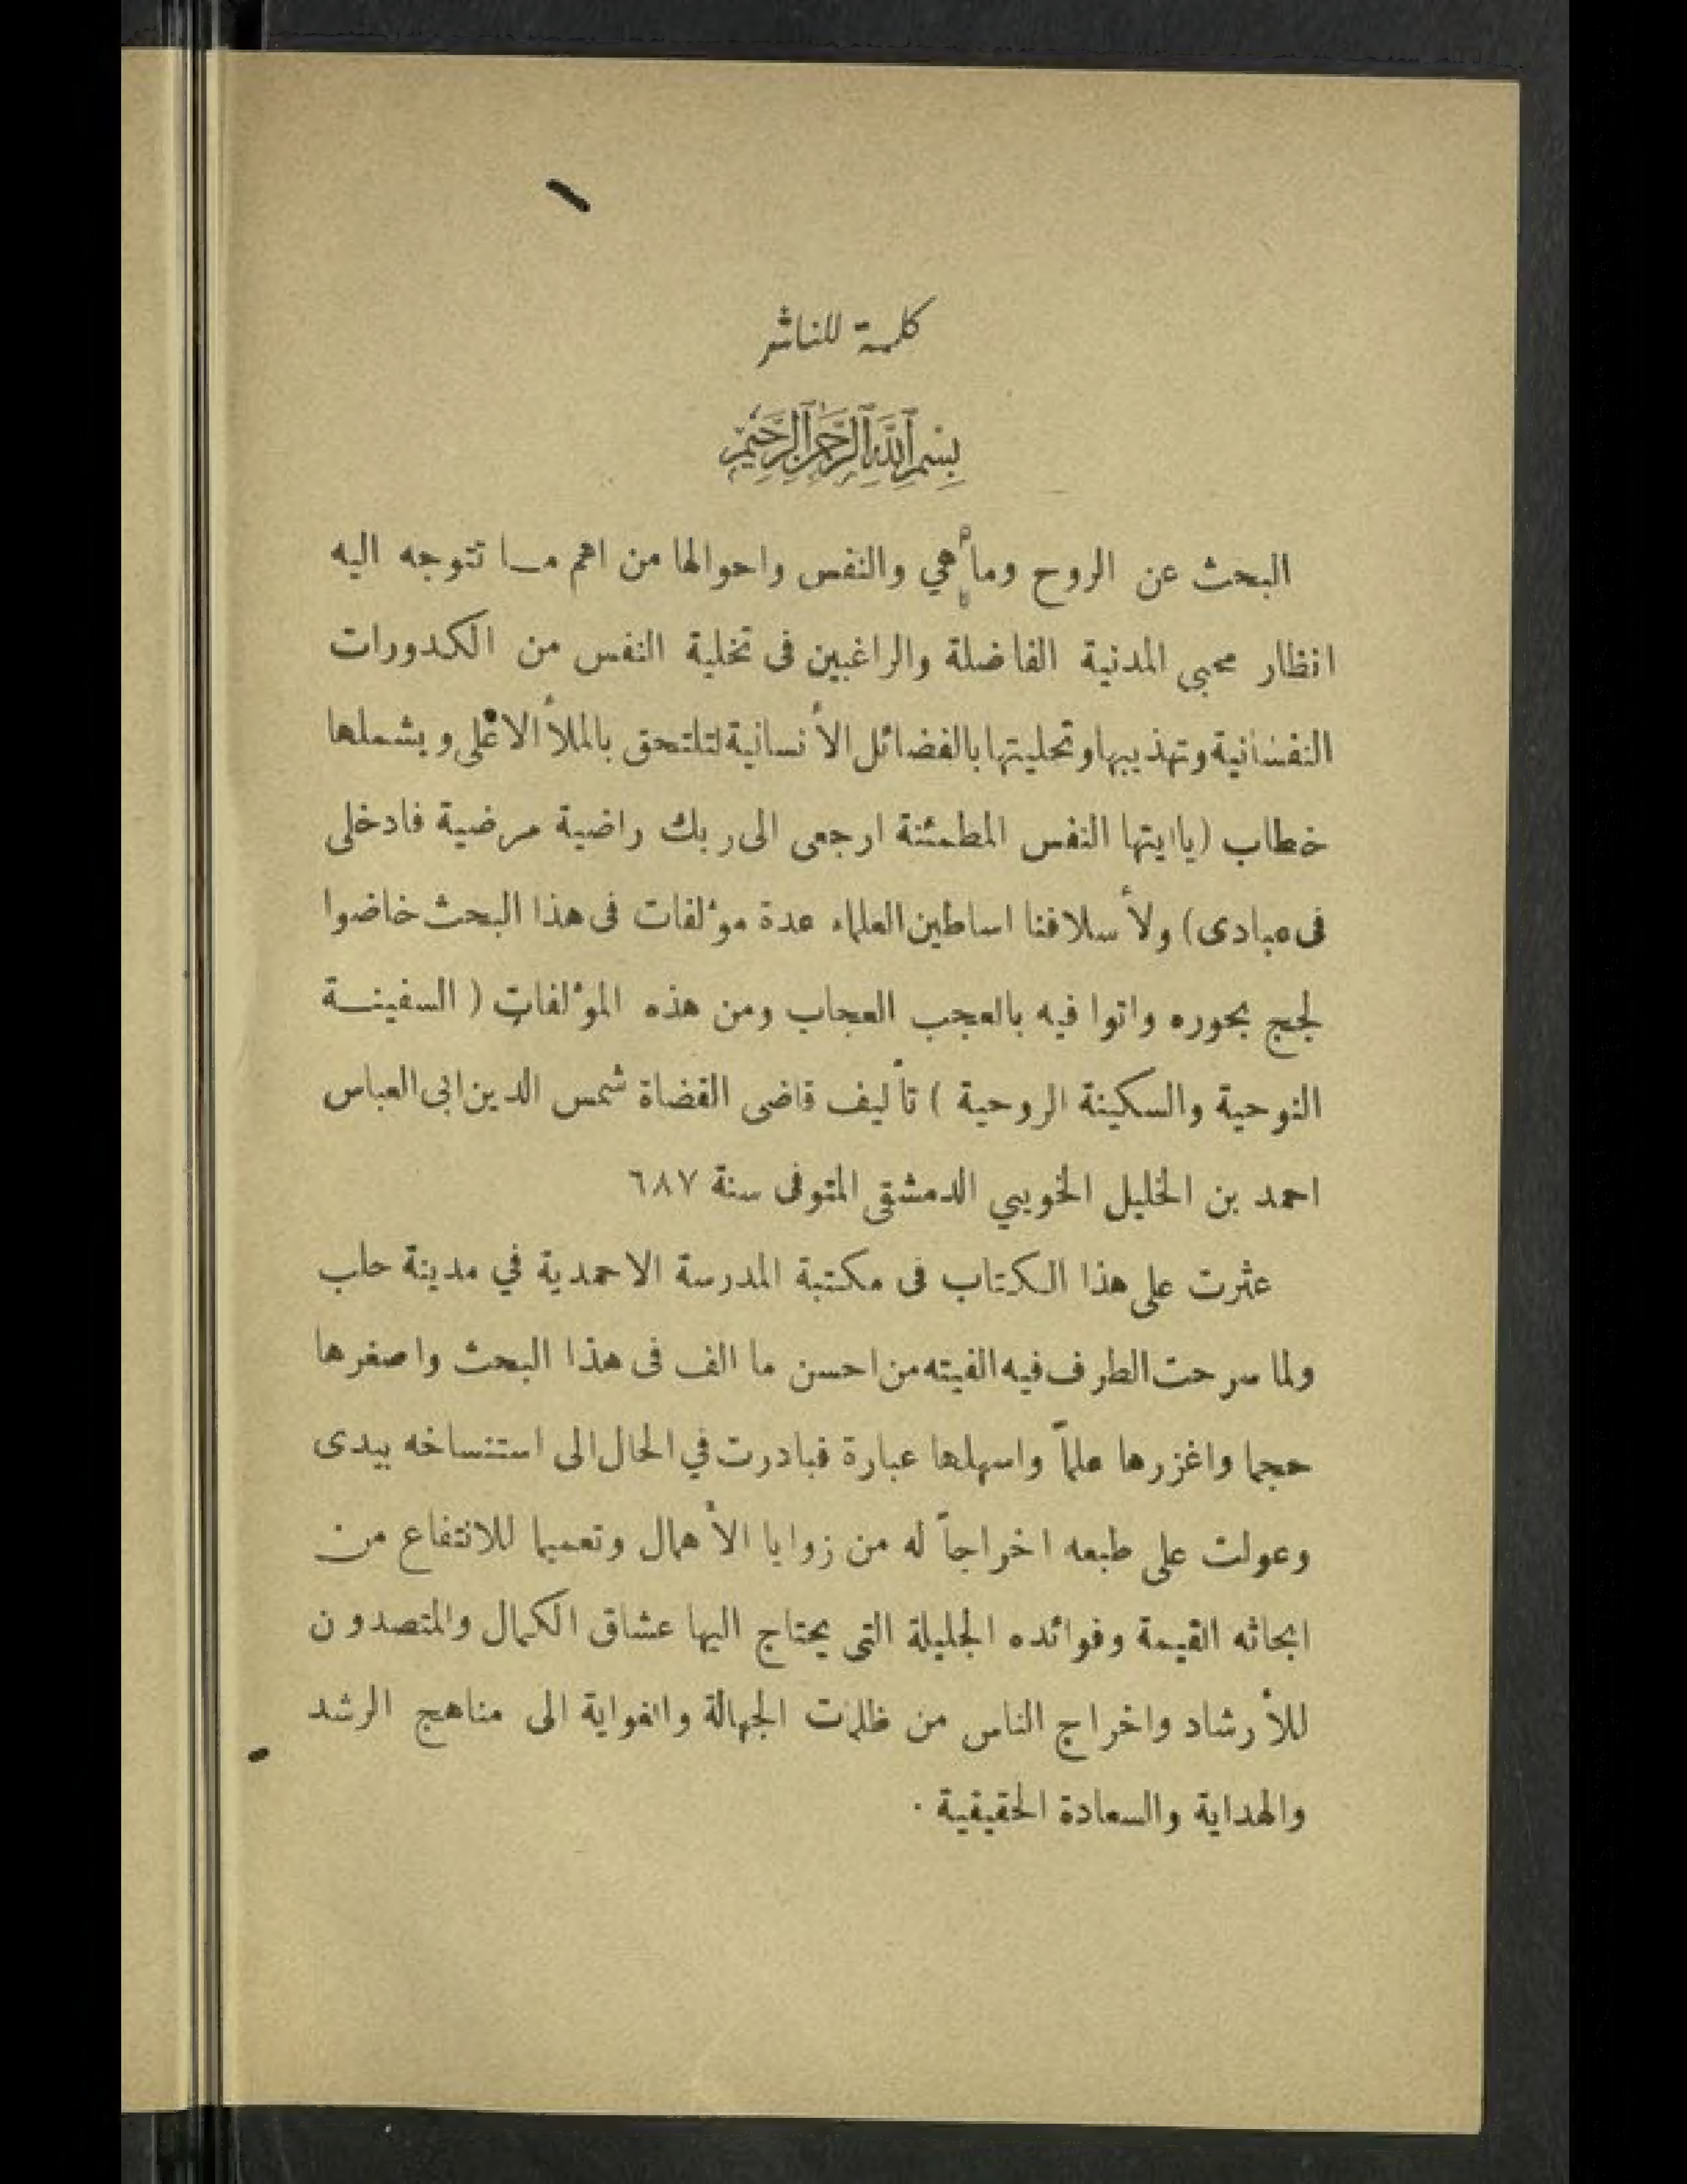 كلمة للناشر
بِسْمِ ٱللَّهِ ٱلرَّحْمَٰنِ ٱلرَّحِيمِ
البحث عن الروح وما هي والنفس واحوالها من اهم مـا تتوجه اليه
انظار محبي المدنية الفاضلة والراغبين فى تخلية النفس من الكدورات
النفسانية وتهذيبها وتحليتها بالفضائل الأنسانية لتلتحق بالملأ الاعلى ويشملها
خطاب (ياايتها النفس المطمئنة ارجعى الى ربك راضية مرضية فادخلى
فى عبادى) ولأسلافنا اساطين العلماء عدة مؤلفات فى هذا البحث خاضوا
لجج بحوره واتوا فيه بالعجب العجاب ومن هذه المؤلفات ( السفينـة
النوحية والسكينة الروحية ) تأليف قاضى القضاة شمس الدين ابى العباس
احمد بن الخليل الخويي الدمشقى المتوفى سنة ٦٨٧
عثرت على هذا الكتاب فى مكتبة المدرسة الاحمدية في مدينة حلب
ولما سرحت الطرف فيه الفيته من احسن ما الف فى هذا البحث واصغرها
حجما واغزرها علماً واسهلها عبارة فبادرت في الحال الى استنساخه بيدى
وعولت على طبعه اخراجاً له من زوايا الأهمال وتعميما للانتفاع من
ابحاثه القيمة وفوائده الجليلة التى يحتاج اليها عشاق الكمال والمتصدون
للأرشاد واخراج الناس من ظلمات الجهالة والغواية الى مناهج الرشد
والهداية والسعادة الحقيقية .